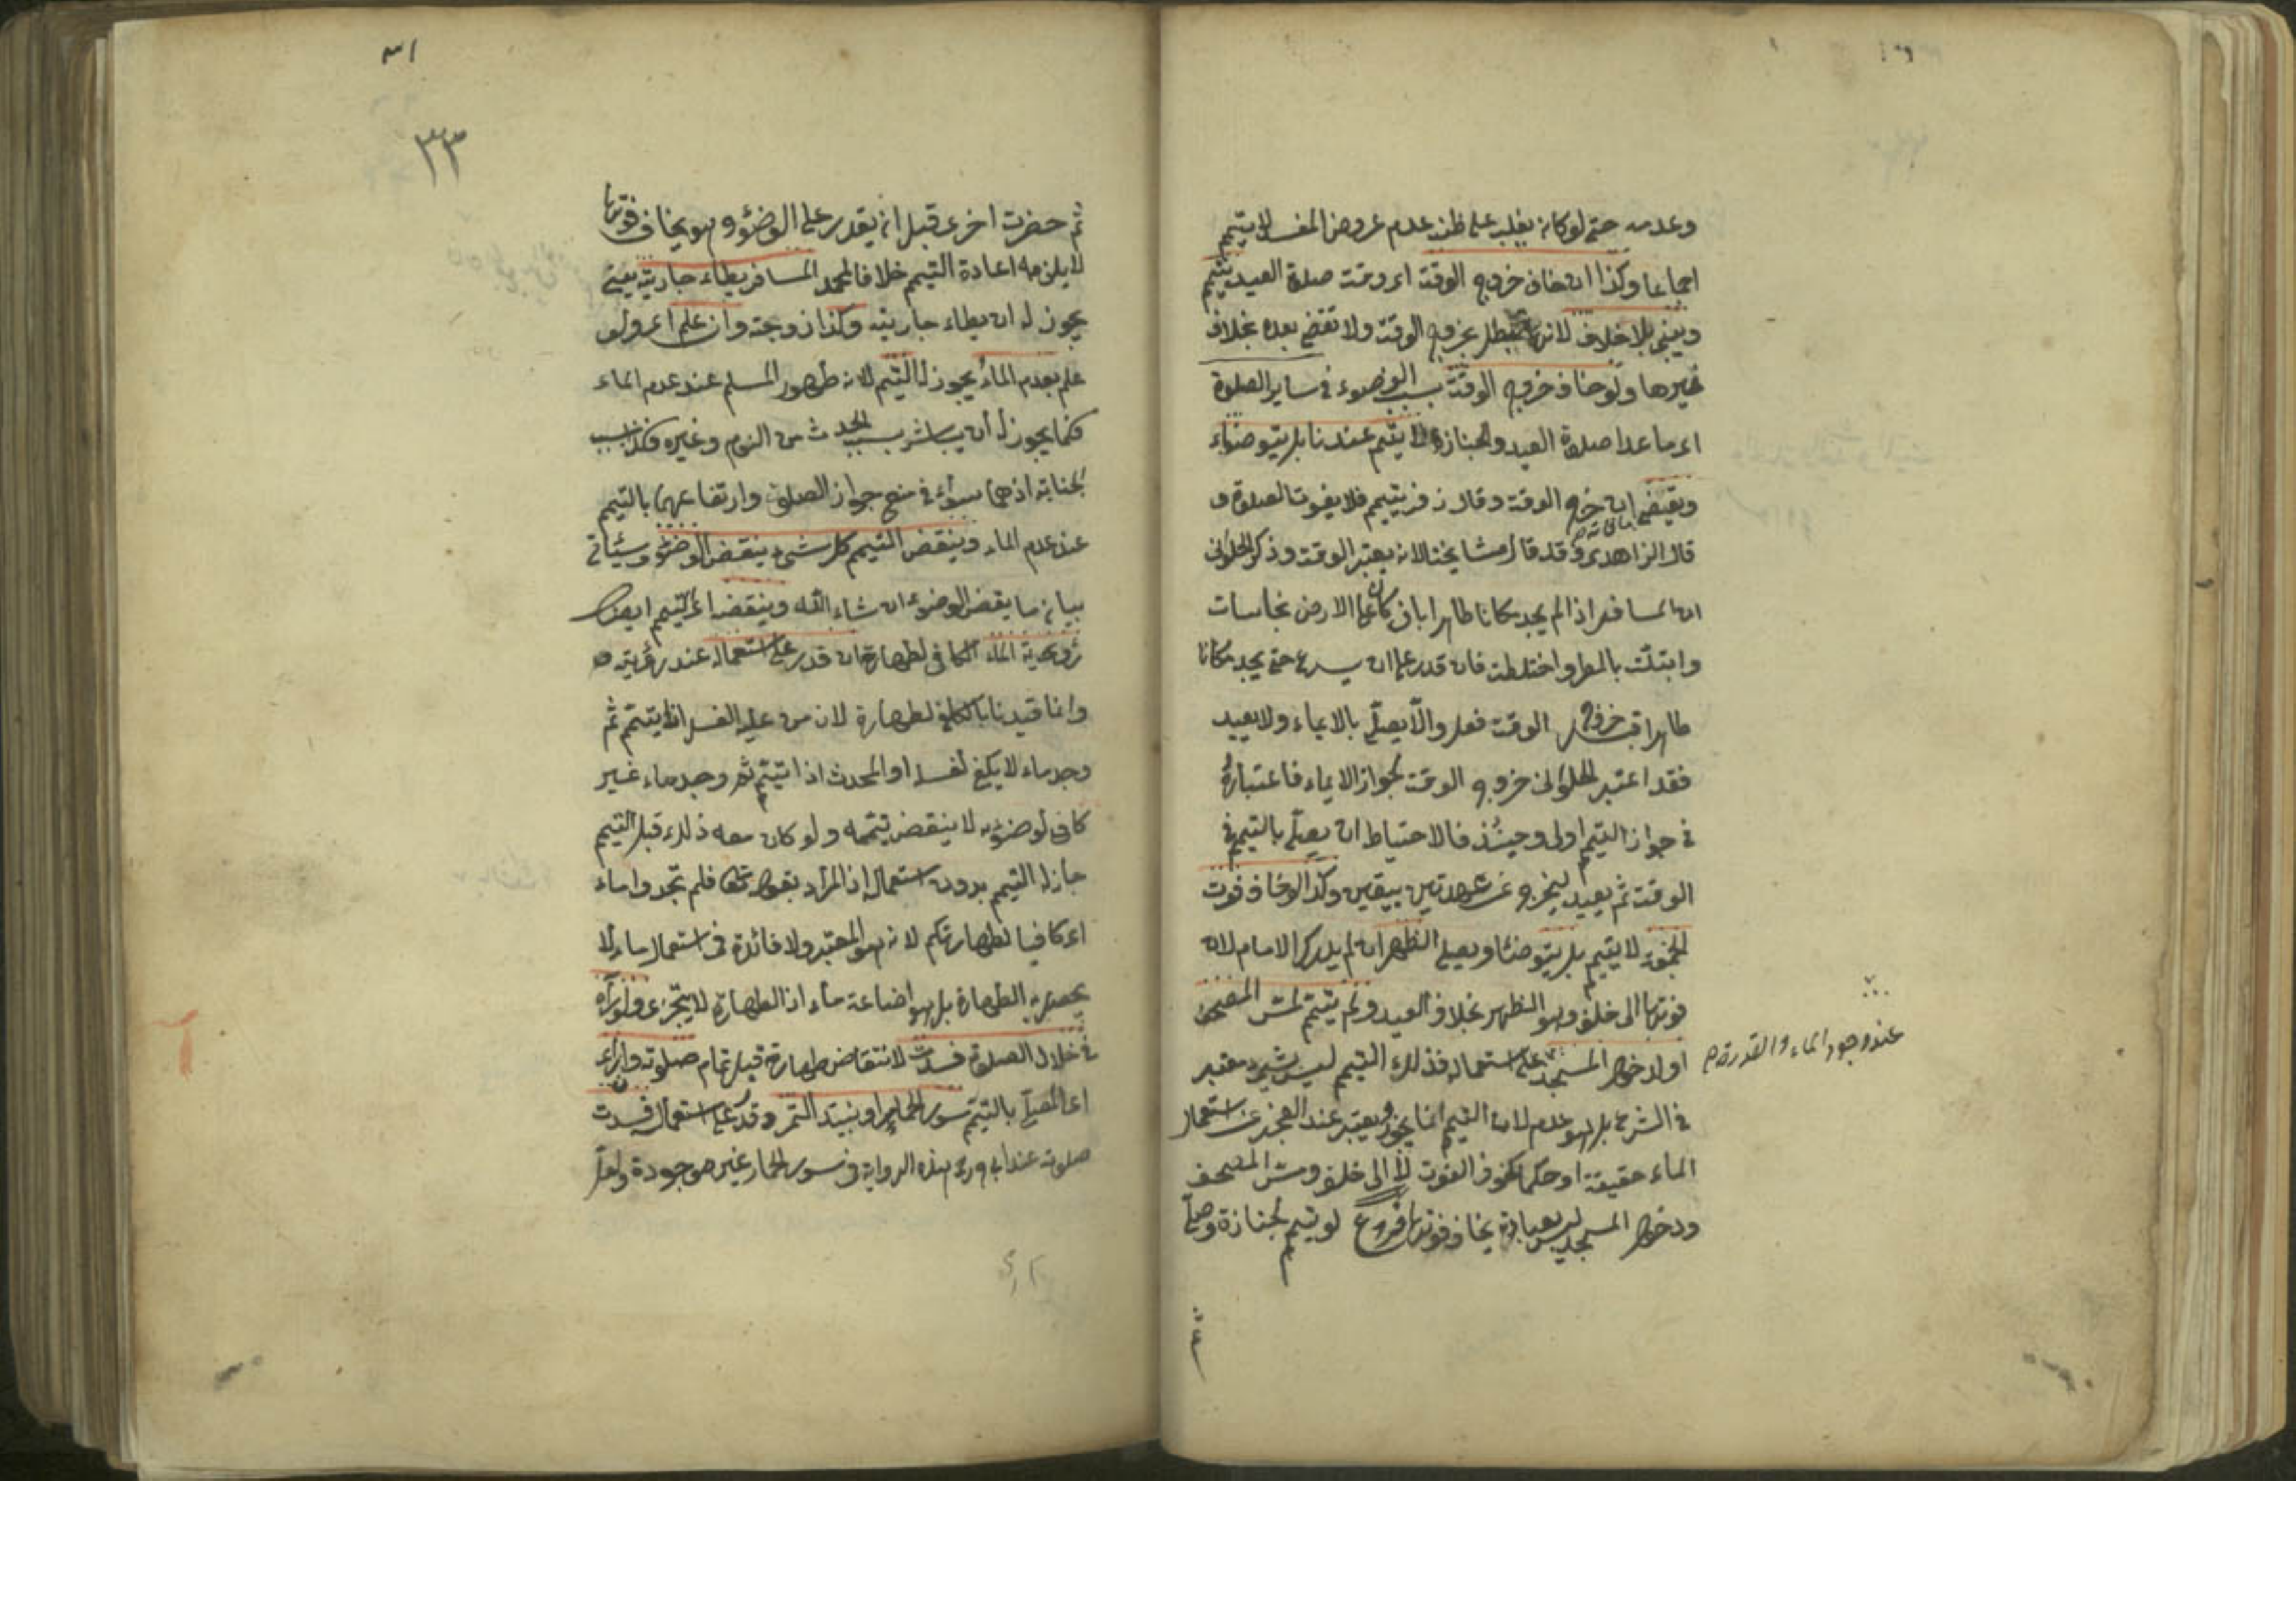 وعدمه حتى لو كان يغلب على ظنه عدم عروض المفسد لا يتيمم
اجماعا وكذا ان خاف خروج الوقت اى وقت صلوة العيد يتيمم
ويبنى بلا خلاف لانها تبطل بخروج الوقت ولا تقضى بعده بخلاف
غيرها ولو خاف خروج الوقت بسبب الوضوء فى ساير الصلوة
اى ما عدا صلوة العيد والجنازة لا يتيمم عندنا بل يتوضاء
ويقضى ان خرج الوقت وقال زفر يتيمم فلا يفوت الصلوة و
قال الزاهدى وقد قال مشايخنا لانه يعتبر الوقت وذكر الحلوانى
ان المسافر اذا لم يجد مكانا طاهرا بان كان على الارض نجاسات
وابتلت بالمطر واختلطت فان قدر على ان يسرع حتى يجد مكانا
طاهرا قبل خروج الوقت فعل والا يصلى بالايماء ولا يعيد
فقد اعتبر الحلوانى خروج الوقت لجواز الايماء فاعتباره
فى جواز التيمم اولى وحينئذ فالاحتياط ان يصلى بالتيمم فى
الوقت ثم يعيد ليخرج عن عهدتين بيقين وكذا لو خاف فوت
الجمعة لا يتيمم بل يتوضئا ويصلى الظهر ان لم يدرك الامام لان
فوتها الى خلف وهو الظهر بخلاف العيد ولو تيمم لمس المصحف
او لدخول المسجد عند وجود الماء والقدرة على استعماله فذلك التيمم ليس بشيء معتبر
فى الشرع بل هو عدم لان التيمم انما يجوز ويعتبر عند العجز عن استعمال
الماء حقيقة او حكما كخوف الفوت لا الى خلف ومس المصحف
ودخول المسجد ليس بعبادة يخاف فوتها فروع لو تيمم لجنازة وصلى
ثم
٣١
٣٣
ثم حضرت اخرى قبل ان يقدر على الوضوء وهو يخاف فوتها
لا يلزمه اعادة التيمم خلافا لمحمد المسافر يطاء جاريته يعنى
يجوز له ان يطاء جاريته وكذا زوجته وان علم اى ولو
علم بعدم الماء يجوز له التيمم لانه طهور المسلم عند عدم الماء
فكما يجوز له ان يباشر بسبب الحدث من النوم وغيره فكذا سبب
الجنابة اذ هما سواء فى منع جواز الصلوة وارتفاعهما بالتيمم
عند عدم الماء وينقض التيمم كل شيء ينقض الوضوء وسيئاتى
بيان ما ينقض الوضوء ان شاء الله وينقض اى التيمم ايضا
رؤية الماء الكافى لطهارته ان قدر على استعماله عند رؤيته
وانما قيدنا بالكافى لطهارة لان من عليه الغسل اذا يتيمم ثم
وجد ماء لا يكفى لغسله او المحدث اذا تيمم ثم وجد ماء غير
كافى لوضوئه لا ينقض تيممه ولو كان معه ذلك قبل التيمم
جاز له التيمم بدون استعماله اذ المراد بقوله تعالى فلم تجدوا ماء
اى كافيا لطهارتكم لانه هو المعتبر ولا فائدة فى استعمال ماء لا
يحصل به الطهارة بل هو اضاعة ماء اذ الطهارة لا يتجزى ولو رآه
فى خلال الصلوة فسدت لانتقاض طهارته قبل تمام صلوته وان رأى
اى المصلى بالتيمم سور الحمار او نبيذ التمر وقدر على استعماله فسدت
صلوته عند ابى هذه الرواية فى سور الحمار غير موجودة ولعل